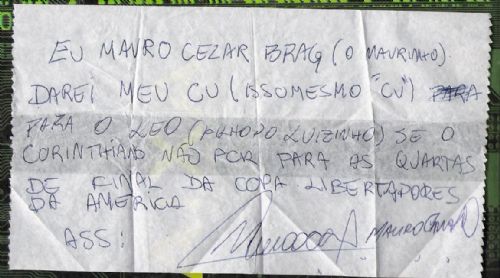 EU MAURO CEZAR BRAG (O MAURINHO).
DAREI MEU CU (ISSO MESMO "CU") PARA
PARA O LEO (FILHO DO LUIZINHO) SE O
CORINTHIANS NÃO FOR PARA AS QUARTAS
DE FINAL DA COPA LIBERTADORES
DA AMERICA
ASS: